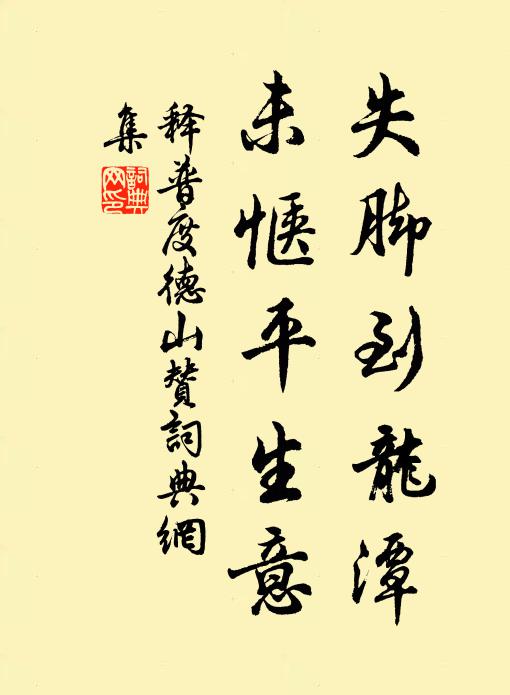 失脚到龍潭
未惬平生意
释普度德山贊詞典網
集
詞典
网印